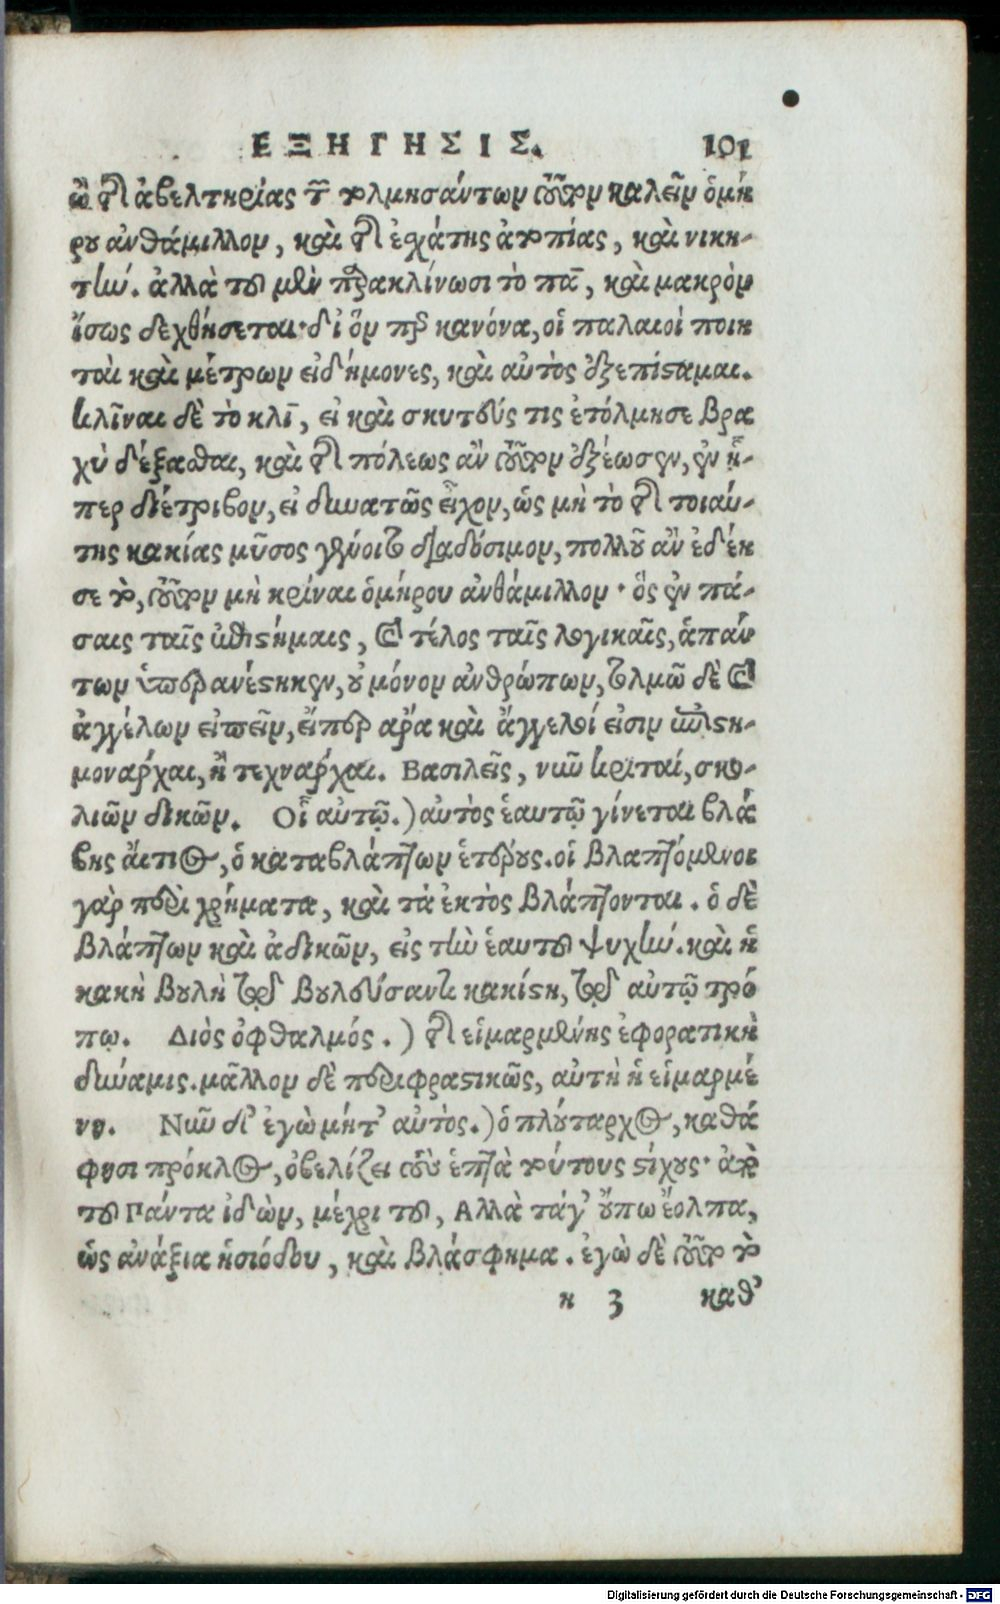 ΕΞΗΓΗΣΙΣ. 101
ὢ τῆς ἀβελτηρίας τῶν τολμησάντων τοῦτον καλεῖν ὁμή
ρου ἀνθάμιλλον, καὶ τῆς ἐσχάτης ἀτοπίας, καὶ νικη-
τὴν. ἀλλὰ τοῦ μὲν παρακλίνωσι τὸ πᾱ, καὶ μακρὸν
ἴσως δεχθήσεται· δι' ὃν περ κανόνα, οἱ παλαιοὶ ποιη
ταὶ καὶ μέτρων εἰδήμονες, καὶ αὐτὸς ἐξεπίσταμαι.
κλῖναι δὲ τὸ κλῑ, εἰ καὶ σκυτεύς τις ἐτόλμησε βρα
χὺ δέξασθαι, καὶ τῆς πόλεως ἂν τοῦτον ἐξέωσεν, ἐν ᾗ-
περ διέτριβον, εἰ δυνατῶς εἶχον, ὡς μὴ τὸ τῆς τοιαύ-
της κακίας μῦσος γένοιτο διαδόσιμον, πολλοῦ ἂν ἐδέη
σε τὸ, τοῦτον μὴ κρῖναι ὁμήρου ἀνθάμιλλον· ὃς ἐν πά-
σαις ταῖς ἐπιστήμαις, καὶ τέλος ταῖς λογικαῖς, ἁπάν
των ὑπερανέστηκεν, οὐ μόνον ἀνθρώπων, τολμῶ δὲ καὶ
ἀγγέλων εἰπεῖν, εἴπερ ἄρα καὶ ἄγγελοί εἰσιν ἐπιστη-
μονάρχαι, ἢ τεχνάρχαι. Βασιλεῖς, νῦν κριταί, σκο-
λιῶν δικῶν. Οἷ αὐτῷ.) αὐτὸς ἑαυτῷ γίνεται βλά
βης αἴτιος, ὁ καταβλάπτων ἑτέρους. οἱ βλαπτόμενοι
γὰρ περὶ χρήματα, καὶ τὰ ἐκτὸς βλάπτονται. ὁ δὲ
βλάπτων καὶ ἀδικῶν, εἰς τὴν ἑαυτοῦ ψυχήν. καὶ ἡ
κακὴ βουλὴ τῷ βουλεύσαντι κακίστη, τῷ αὐτῷ τρό
πῳ. Διὸς ὀφθαλμός.) τῆς εἱμαρμένης ἐφορατικὴ
δύναμις. μᾶλλον δὲ περιφραστικῶς, αὐτὴ ἡ εἱμαρμέ
νη. Νῦν δ' ἐγὼ μήτ' αὐτὸς.) ὁ πλούταρχος, καθά
φησι πρόκλος, ὀβελίζει τοὺς ἑπτὰ τούτους στίχους· ἀπὸ
τοῦ Πάντα ἰδὼν, μέχρι τοῦ, Ἀλλὰ τάγ' οὔπω ἔολπα,
ὡς ἀνάξια ἡσιόδου, καὶ βλάσφημα. ἐγὼ δὲ τοῦτο τὸ
κ 3 καθ'
Digitalisierung gefördert durch die Deutsche Forschungsgemeinschaft - DFG